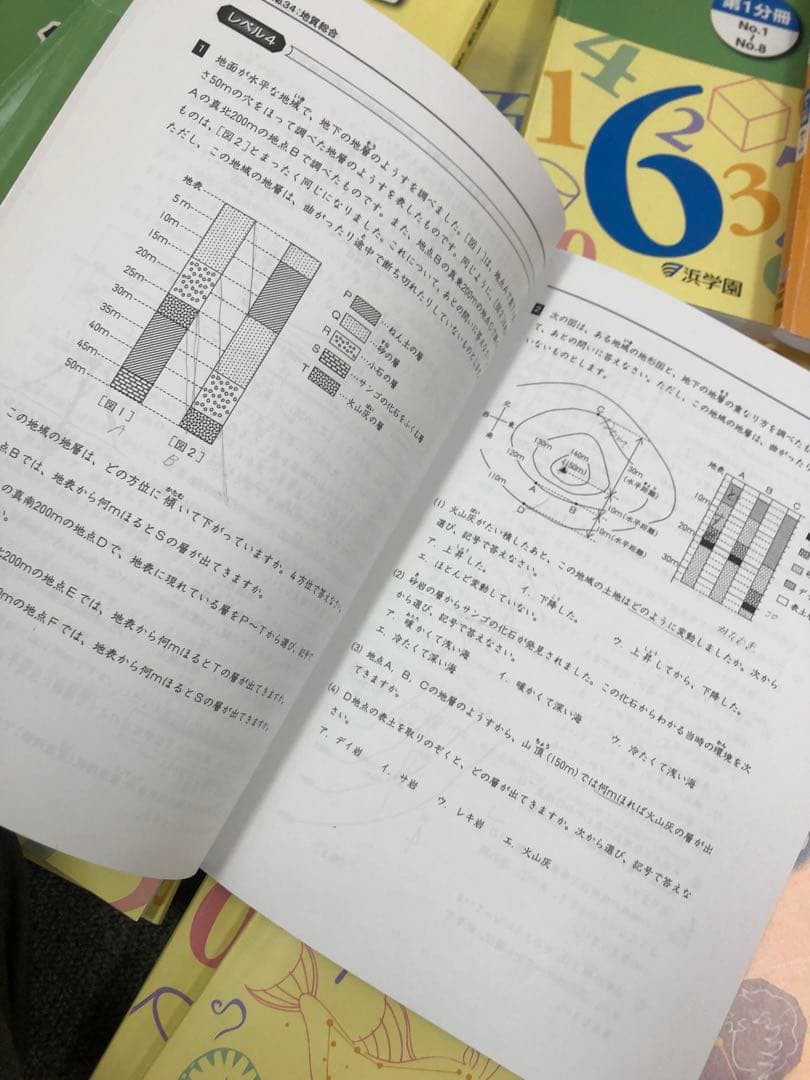 34:地質総合
レベル4
1 地面が水平な地域で、地下の地層のようすを調べました。[図1]は、地点Aで
さ50mの穴をほって調べた地層のようすを表したものです。また、地点Bの真東200mの地点
Aの真北200mの地点Bで調べたものです。同じように、[図2]
ものは、[図2]とまったく同じになりました。これについて、あとの問いに答えなさい。
ただし、この地域の地層は、曲がったり途中で断ち切れたりしていないものとします。
地表
5m
10m
15m
20m
25m
30m
35m
40m
45m
50m
[図1]
A
[図2]
B
P…ねん土の層
Q…砂の層
R…小石の層
S…サンゴの化石をふくむ層
T…火山灰の層
この地域の地層は、どの方位に傾いて下がっていますか。4方位で答えなさい。
点Bでは、地表から何mほるとSの層が出てきますか。
の真南200mの地点Dで、地表に現れている層をP〜Tから選び、記号で
200mの地点Eでは、地表から何mほるとTの層が出てきますか。
0mの地点Fでは、地表から何mほるとSの層が出てきますか。
次の図は、ある地域の地形図と、地下の地層の重なり方を調べたも
て、あとの問いに答えなさい。ただし、この地域の地層は、曲がった
いないものとします。
北
西 東
南
110m
120m
130m
140m
(150m)
A
B
C
D
30m
(水平距離)
10m(水平距離)
10m(水平距離)
地表
A B C
10m
20m
30m
(1) 火山灰がたい積したあと、この地域の土地はどのように変動しましたか。次から
選び、記号で答えなさい。
ア．上昇した。 イ．下降した。 ウ．上昇してから、下降した。
エ．ほとんど変動していない。
(2) 砂岩の層からサンゴの化石が発見されました。この化石からわかる当時の環境を次
から選び、記号で答えなさい。
ア．暖かくて浅い海 イ．暖かくて深い海 ウ．冷たくて浅い海
エ．冷たくて深い海
(3) 地点A、B、Cの地層のようすから、山頂(150m)では何mほれば火山灰の層が出
てきますか。
(4) D地点の表土を取りのぞくと、どの層が出てきますか。次から選び、記号で答えな
さい。
ア．デイ岩 イ．サ岩 ウ．レキ岩 エ．火山灰
第1分冊
No.1
No.8
4
1
2
6
3
浜学園